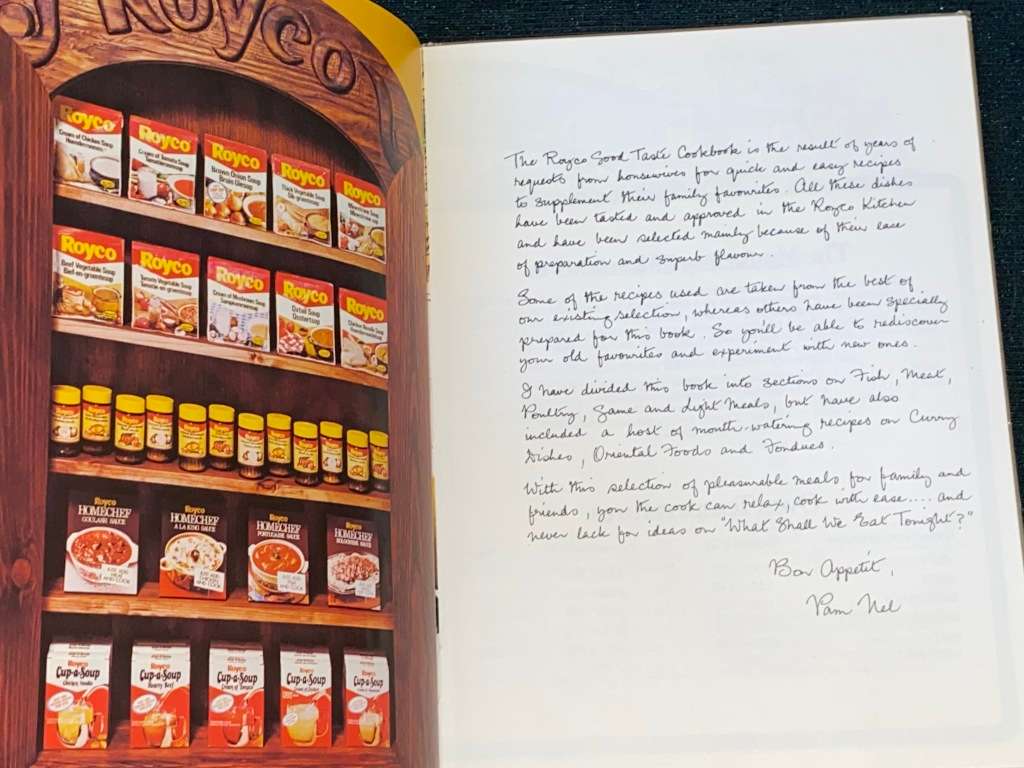 Royco
Royco
Cream of Chicken Soup
Hoenderroomsop
Royco
Cream of Tomato Soup
Tomatieroomsop
Royco
Brown Onion Soup
Bruin Uiesop
Royco
Thick Vegetable Soup
Dik-groentesop
Royco
Minestrone Soup
Minestrone-sop
Royco
Beef Vegetable Soup
Bief-en-groentesop
Royco
Tomato Vegetable Soup
Tomatie-en-groentesop
Royco
Cream of Mushroom Soup
Sampioenroomsop
Royco
Oxtail Soup
Ossstertsop
Royco
Chicken Noodle Soup
Hoendernoedelsop
Royco
HOMECHEF
GOULASH SAUCE
JUST ADD
MEAT
AND COOK
Royco
HOMECHEF
A LA KING SAUCE
JUST ADD
CHICKEN
AND COOK
Royco
HOMECHEF
PORTUGUESE SAUCE
JUST ADD
AND COOK
Royco
HOMECHEF
BOLOGNESE SAUCE
Royco
Cup-a-Soup
Chicken Noodle
Royco
Cup-a-Soup
Hearty Beef
Royco
Cup-a-Soup
Cream of Tomato
Royco
Cup-a-Soup
Royco
Cup-a-Soup
The Royco Good Taste Cookbook is the result of years of
requests from housewives for quick and easy recipes
to supplement their family favourites. All these dishes
have been tasted and approved in the Royco Kitchen
and have been selected mainly because of their ease
of preparation and superb flavour.
Some of the recipes used are taken from the best of
our existing selection, whereas others have been specially
prepared for this book. So you'll be able to rediscover
your old favourites and experiment with new ones.
I have divided this book into sections on Fish, Meat,
Poultry, Game and Light Meals, but have also
included a host of mouth-watering recipes on Curry
Dishes, Oriental Foods and Fondues.
With this selection of pleasurable meals for family and
friends, you the cook can relax, cook with ease.... and
never lack for ideas on "What Shall We Eat Tonight?"
Bon Appetit,
Pam Nel